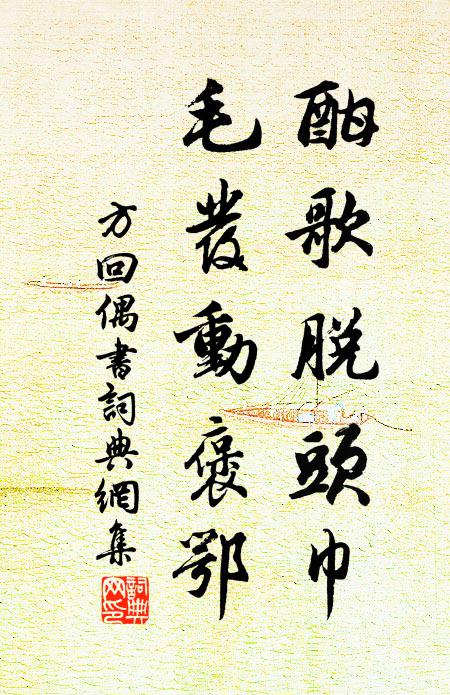 酣歌脱頭巾
毛發動褒鄂
方回偶書詞典網集
詞典网印